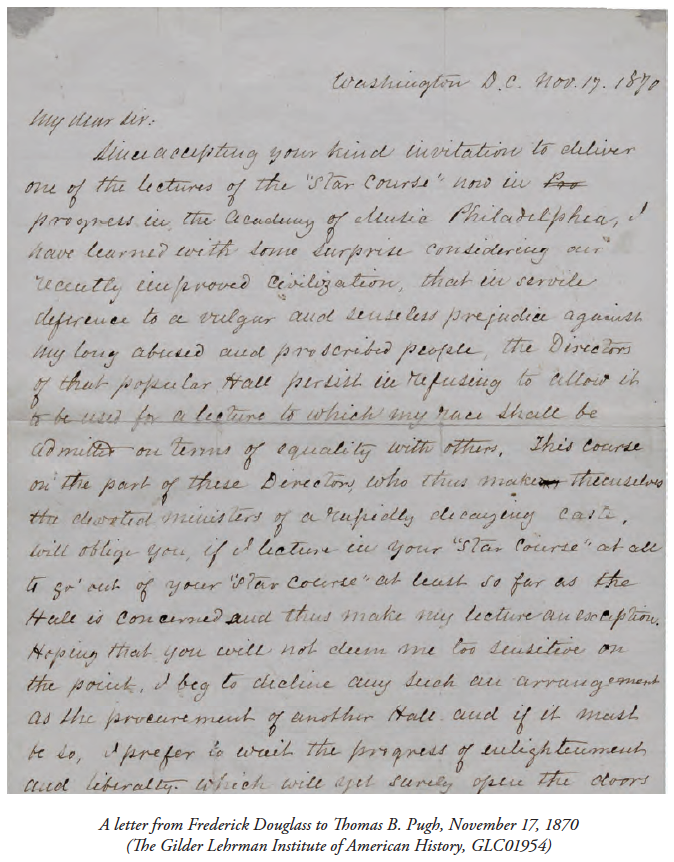 Washington D.C. Nov. 17. 1870
My dear Sir:
Since accepting your kind invitation to deliver
one of the lectures of the "Star Course" now in Pro
progress in, the Academy of Music Philadelphia, I
have learned with some surprise considering our
recently improved civilization, that in servile
deference to a vulgar and senseless prejudice against
my long abused and proscribed people, the Directors
of that popular Hall persist in refusing to allow it
to be used for a lecture to which my race shall be
admitted on terms of equality with others. This course
on the part of these Directors, who thus make themselves
the devoted ministers of a rapidly decaying caste,
will oblige you, if I lecture in your "Star Course" at all
to go out of your "Star Course" at least so far as the
Hall is concerned and thus make my lecture an exception.
Hoping that you will not deem me too sensitive on
the point, I beg to decline any such an arrangement
as the procurement of another Hall and if it must
be so, I prefer to wait the progress of enlightenment
and liberality which will yet surely open the doors
A letter from Frederick Douglass to Thomas B. Pugh, November 17, 1870
(The Gilder Lehrman Institute of American History, GLC01954)